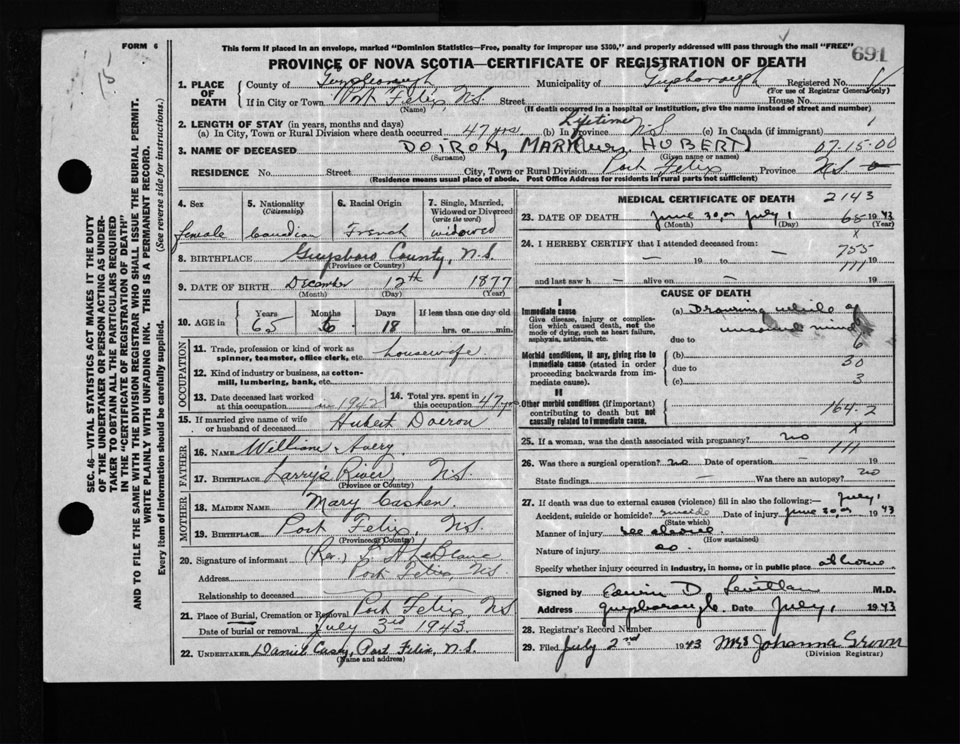 FORM 6
This form if placed in an envelope, marked "Dominion Statistics—Free, penalty for improper use $300," and properly addressed will pass through the mail "FREE"
691
PROVINCE OF NOVA SCOTIA—CERTIFICATE OF REGISTRATION OF DEATH
1. PLACE OF DEATH
County of Guysborough Municipality of Guysborough Registered No.
(For use of Registrar General only)
If in City or Town Port Felix N.S. Street House No.
(Name) (If death occurred in a hospital or institution, give the name instead of street and number)
2. LENGTH OF STAY (in years, months and days)
(a) In City, Town or Rural Division where death occurred 47 yrs. (b) In Province Lifetime N.S (c) In Canada (if immigrant)
3. NAME OF DECEASED DOIRON, MARY (Mrs. HUBERT) 07-15-00
(Surname) (Given name or names)
RESIDENCE No. Street City, Town or Rural Division Port Felix Province N.S
(Residence means usual place of abode. Post Office Address for residents in rural parts not sufficient)
4. Sex
female
5. Nationality
(Citizenship)
Canadian
6. Racial Origin
French
7. Single, Married, Widowed or Divorced
(write the word)
widowed
8. BIRTHPLACE Guysboro County, N.S.
(Province or Country)
9. DATE OF BIRTH December 12th 1877
(Month) (Day) (Year)
10. AGE in Years Months Days If less than one day old
65 6 18 hrs. or min.
OCCUPATION
11. Trade, profession or kind of work as spinner, teamster, office clerk, etc. housewife
12. Kind of industry or business, as cotton-mill, lumbering, bank, etc.
13. Date deceased last worked at this occupation in 1942
14. Total yrs. spent in this occupation 47 yrs
15. If married give name of wife or husband of deceased Hubert Doiron
FATHER
16. NAME William Avery
17. BIRTHPLACE Larry's River, N.S
(Province or Country)
MOTHER
18. MAIDEN NAME Mary Cashen
19. BIRTHPLACE Port Felix, N.S.
(Province or Country)
20. Signature of informant (Rev.) LeBlanc
Address Port Felix, N.S.
Relationship to deceased
21. Place of Burial, Cremation or Removal Port Felix, N.S
Date of burial or removal July 3rd 1943
22. UNDERTAKER Daniel Casey, Port Felix, N.S.
(Name and address)
MEDICAL CERTIFICATE OF DEATH 2143
23. DATE OF DEATH June 30, or July 1 1943
(Month) (Day) (Year)
24. I HEREBY CERTIFY that I attended deceased from: 755
— 19 to — 19
111
and last saw h — alive on — 19
CAUSE OF DEATH
I
Immediate cause
Give disease, injury or complication which caused death, not the mode of dying, such as heart failure, asphyxia, asthenia, etc.
(a) Drowning while of unsound mind
due to 6
Morbid conditions, if any, giving rise to immediate cause (stated in order proceeding backwards from immediate cause).
(b) 30
due to
(c) 3
II
Other morbid conditions (if important) contributing to death but not causally related to immediate cause.
164-2
25. If a woman, was the death associated with pregnancy? no
111
26. Was there a surgical operation? no Date of operation — 19
State findings — Was there an autopsy? no
27. If death was due to external causes (violence) fill in also the following:—
Accident, suicide or homicide? suicide Date of injury June 30, or July 1 1943
(State which)
Manner of injury see above
(How sustained)
Nature of injury do.
Specify whether injury occurred in industry, in home, or in public place at home
Signed by Edwin D. M.D.
Address Guysborough Date July 1 1943
28. Registrar's Record Number
29. Filed July 2nd 1943 Mrs Johanna
(Division Registrar)
SEC. 46—VITAL STATISTICS ACT MAKES IT THE DUTY OF THE UNDERTAKER OR PERSON ACTING AS UNDERTAKER TO OBTAIN ALL THE PARTICULARS REQUIRED IN THE "CERTIFICATE OF REGISTRATION OF DEATH"
AND TO FILE THE SAME WITH THE DIVISION REGISTRAR WHO SHALL ISSUE THE BURIAL PERMIT.
WRITE PLAINLY WITH UNFADING INK. THIS IS A PERMANENT RECORD.
Every item of information should be carefully supplied. (See reverse side for instructions.)